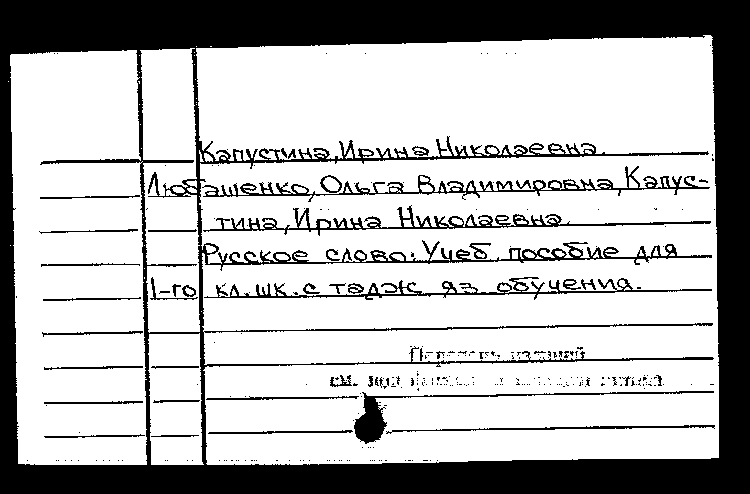 Капустина, Ирина Николаевна.
Любашенко, Ольга Владимировна, Капус-
тина, Ирина Николаевна.
Русское слово: Учеб. пособие для
1-го кл. шк. с тадж. яз. обучения.
Перечень изданий
см. под